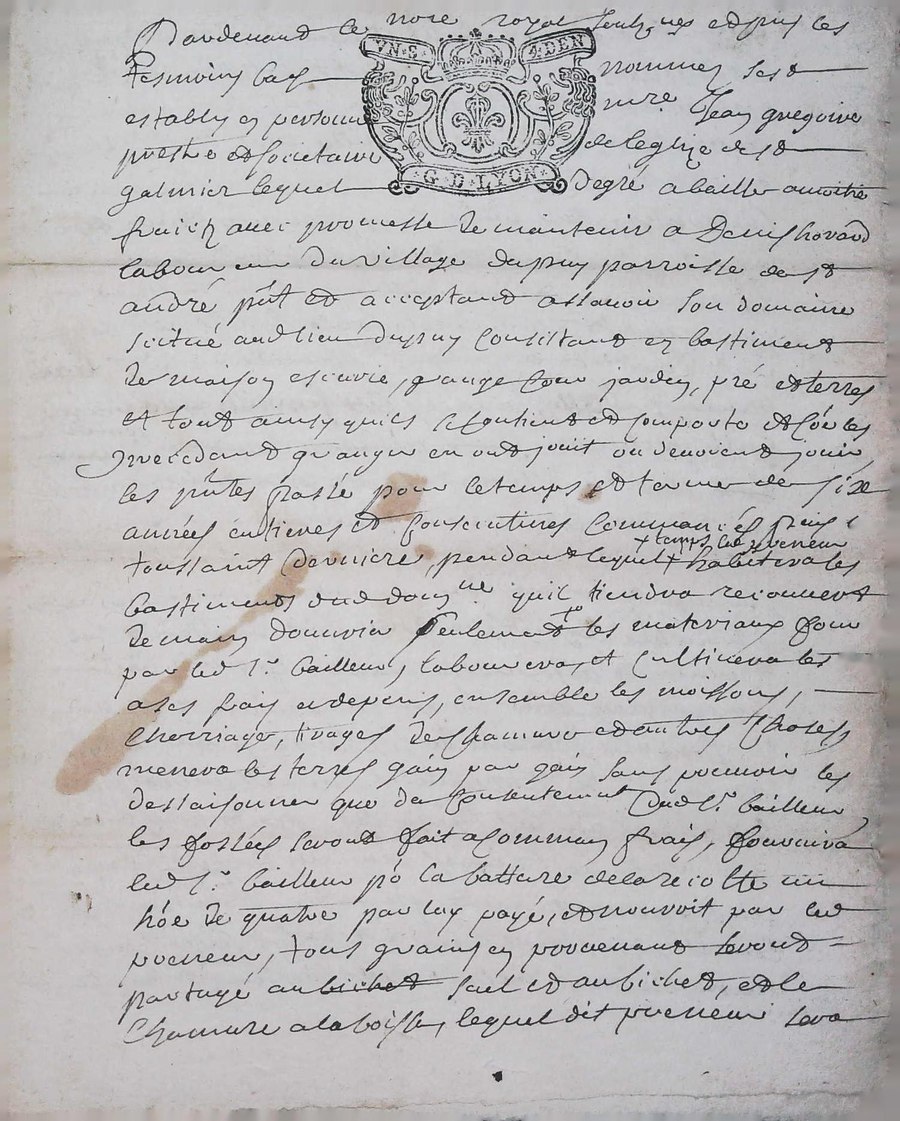 Pardevant le no.re royal soubz.né et puis les
VN.S. 4.DEN
tesmoins bas nommez sest
estably en personne m.re Jean gregoire
prestre et societaire de leglize de st
G.D.LYON.
galmier lequel de gré a baillé a moitié
fruictz avec promesse de maintenir a Denis
laboureur du village du puy parroisse de st
andré p.nt et acceptant assavoir son domaine
scitué aud lieu du puy consistant en bastiment
de maison escurie, grange cour jardin, pré et terres
et tout ainsy quil se contient et comporte et que les
precedant granger en ont jouit ou devoient jouir
les p.ntes passé pour le temps et terme de six
années entieres et consecutives commancés
+ temps led preneur
toussaint derniere, pendant lequel + habitera les
bastiments dud dom.ne quil tiendra recouvert
de main douvrier seulement les materiaux
par led s.r bailleur, labourera, et cultivera les
a ses frais et depens, ensemble les moissons,
cherriage, tirages de chanvre et autres choses,
menera les terres gain par gain sans pouvoir les
dessaisonner que du consentement dud s.r bailleur
les fossés seront fait a commun frais, fournira
led s.r bailleur po la batture de la recolte un
hôe de quatre par luy payé, et nourrit par led
preneur, tous grains en provenant seront
partagé au bichet sael et au bichet, et le
chanvre a la boisse, lequel dit preneur sera